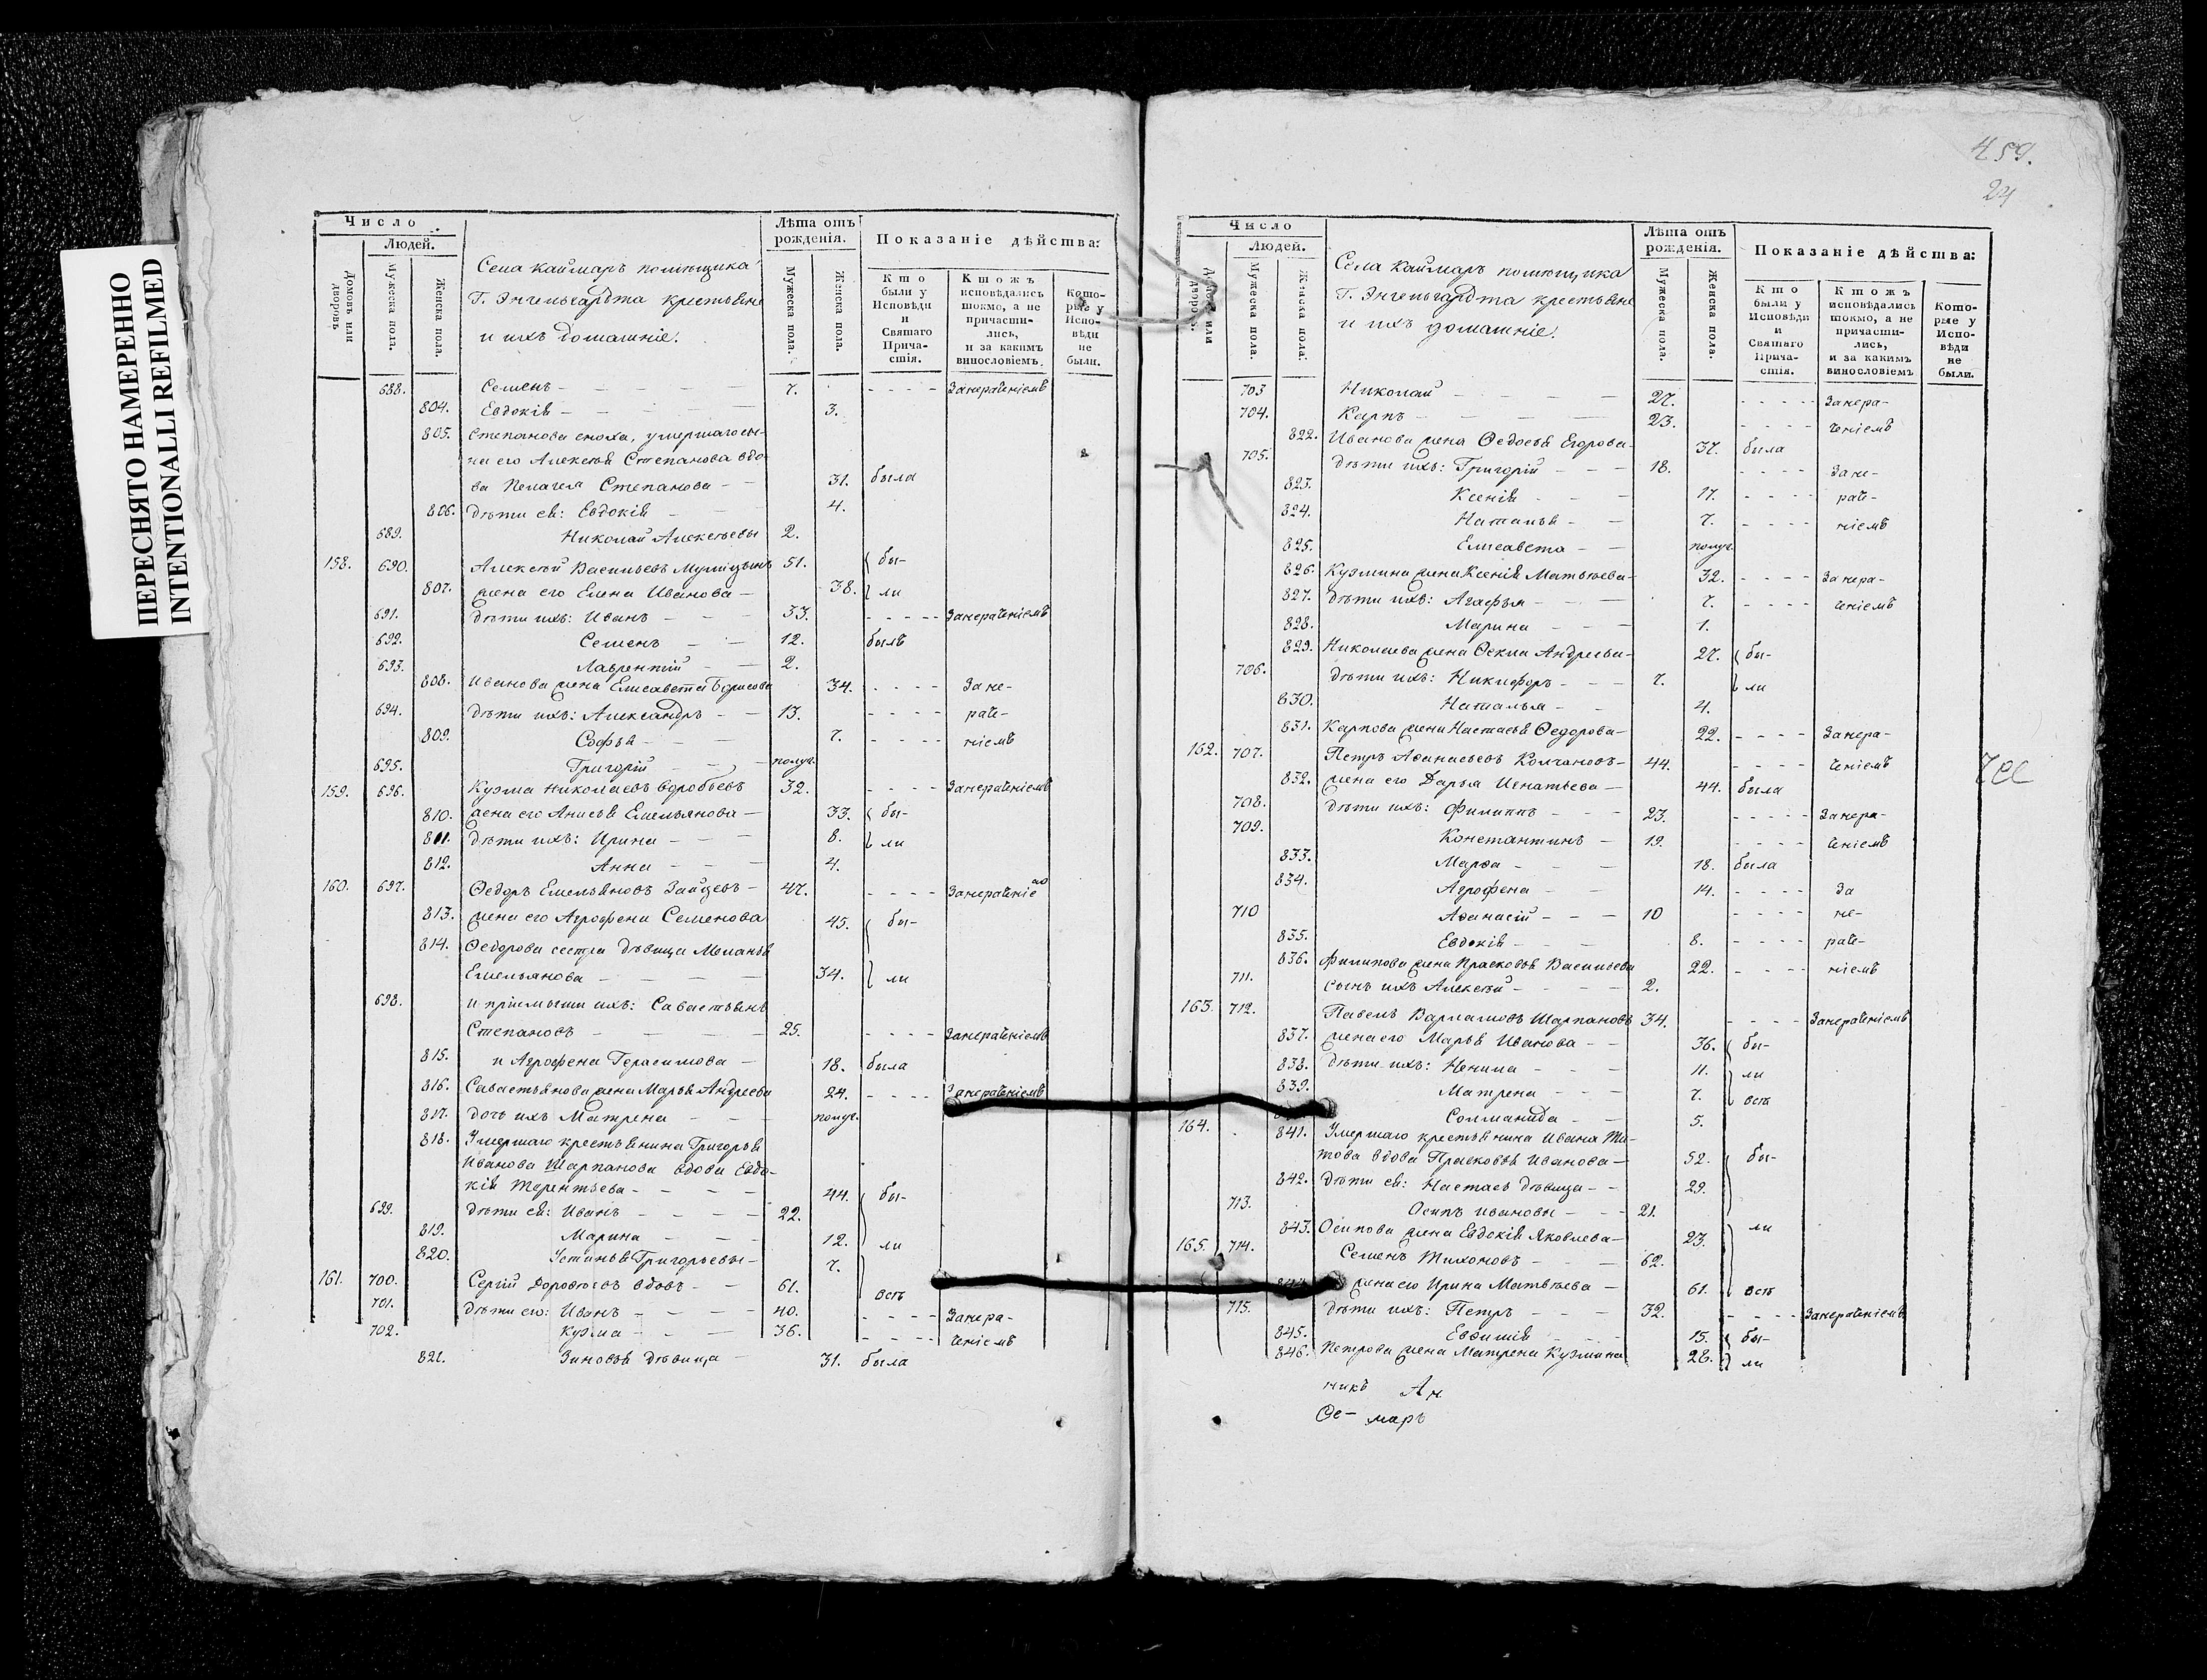 ПЕРЕСНЯТО НАМЕРЕННО
INTENTIONALLI REFILMED
Число
Людей.
Домовъ или дворовъ
Мужеска пола.
Женска пола.
Села Каймаръ помѣщика
Г. Энгельгардта крестьяне
и ихъ домашніе.
Лѣта отъ рожденія.
Мужеска пола.
Женска пола.
Показаніе дѣйства:
Кто были у Исповѣди и Святаго Причастія.
Ктожъ исповѣдались токмо, а не причастились, и за какимъ винословіемъ.
Которые у Исповѣди не были.
688. Семенъ - 7. - - - - Занераченіемъ
804. Евдокія - 3.
805. Степанова сноха, умершаго сы-
на его Алексѣя Степанова вдо-
ва Пелагея Степанова - 31. была
806. дѣти ея: Евдокія - 4.
689. Николай Алексѣевы 2.
158. 690. Алексѣй Васильевъ 51. бы-
807. жена его Елена Иванова - 38. ли
691. дѣти ихъ: Иванъ - 33. - - - - Занераченіемъ
692. Семенъ - 12. былъ
693. Лаврентій - 2.
808. Иванова жена Елисавета Борисова 34. - - - - За не-
694. дѣти ихъ: Александръ - 13. - - - - раче-
809. Софья - 7. - - - - ніемъ
695. Григорій - полуг.
159. 696. Кузма Николаевъ Воробьевъ 32. - - - - Занераченіемъ
810. жена его Анисья Емельянова - 33. бы-
811. дѣти ихъ: Ирина - 8. ли
812. Анна - 4.
160. 697. Ѳедоръ Емельяновъ Зайцевъ - 47. - - - - Занераченіемъ
813. жена его Агрофена Семенова 45. бы-
814. Ѳедорова сестра дѣвица Меланья
Емельянова - 34. ли
698. и пріемыши ихъ: Савастьянъ
Степановъ - 25. - - - - Занераченіемъ
815. и Агрофена Герасимова - 18. была
816. Савастьянова жена Марья Андреева 24. - - - - Занераченіемъ
817. дочь ихъ Матрена - полуг.
818. Умершаго крестьянина Григорья
Иванова Шарпанова вдова Евдо-
кія Терентьева - 44. бы-
699. дѣти ея: Иванъ - 22.
819. Марина - 12. ли
820. Устинья Григорьевы - 7.
161. 700. Сергій Дороѳеевъ вдовъ - 61. всѣ
701. дѣти его: Иванъ - 40. - - - - Занера-
702. Кузма - 36. - - - - ченіемъ
821. Зиновья дѣвица - 31. была
459.
24
Число
Людей.
Домовъ или дворовъ
Мужеска пола.
Женска пола.
Села Каймаръ помѣщика
Г. Энгельгардта крестьяне
и ихъ домашніе.
Лѣта отъ рожденія.
Мужеска пола.
Женска пола.
Показаніе дѣйства:
Кто были у Исповѣди и Святаго Причастія.
Ктожъ исповѣдались токмо, а не причастились, и за какимъ винословіемъ
Которые у Исповѣди не были.
703 Николай - 27. - - - - Занера-
704. Карпъ - 23. - - - - ченіемъ
822. Иванова жена Ѳедосья Егорова - 37. была
705. дѣти ихъ: Григорій - 18. - - - - Зане-
823. Ксенія - 17. - - - - раче-
824. Наталья - 7. - - - - ніемъ
825. Елисавета - полуг.
826. Кузмина жена Ксенія Матвѣева - 32. - - - - Занера-
827. дѣти ихъ: Агафья - 7. - - - - ченіемъ
828. Марина - 1.
829. Николаева жена Ѳекла Андреева - 27. бы-
706. дѣти ихъ: Никифоръ - 7. ли
830. Наталья - 4.
831. Карпова жена Настасья Ѳедорова - 22. - - - - Занера-
162. 707. Петръ Аѳанасьевъ Колчановъ - 44. - - - - ченіемъ
832. жена его Дарья Игнатьева - 44. была
708. дѣти ихъ: Филиппъ - 23. - - - - Занера-
709. Константинъ - 19. - - - - ченіемъ
833. Марѳа - 18. была
834. Агрофена - 14. - - - - За
710 Аѳанасій - 10 - - - - не-
835. Евдокія - 8. - - - - раче-
836. Филипова жена Прасковья Васильева 22. - - - - ніемъ
711. сынъ ихъ Алексѣй - 2.
163. 712. Павелъ Варламовъ Шарпановъ 34. - - - - Занераченіемъ
837. жена его Марья Иванова - 36. бы-
838. дѣти ихъ: Ненила - 11. ли
839. Матрена - 7. всѣ
Соломанида - 5.
164. 841. Умершаго крестьянина Ивана Ти-
това вдова Прасковья Иванова - 52. бы-
842. дѣти ея: Настасья дѣвица - 29.
713. Осипъ Ивановы - 21.
843. Осипова жена Евдокія Яковлева - 23. ли
165. 714. Семенъ Тихоновъ - 62.
844. жена его Ирина Матвѣева - 61. всѣ
715. дѣти ихъ: Петръ - 32. - - - - Занераченіемъ
845. Евѳимія - 15. бы-
846. Петрова жена Матрена Кузмина 28. ли
никъ Ан
Ѳе- маръ